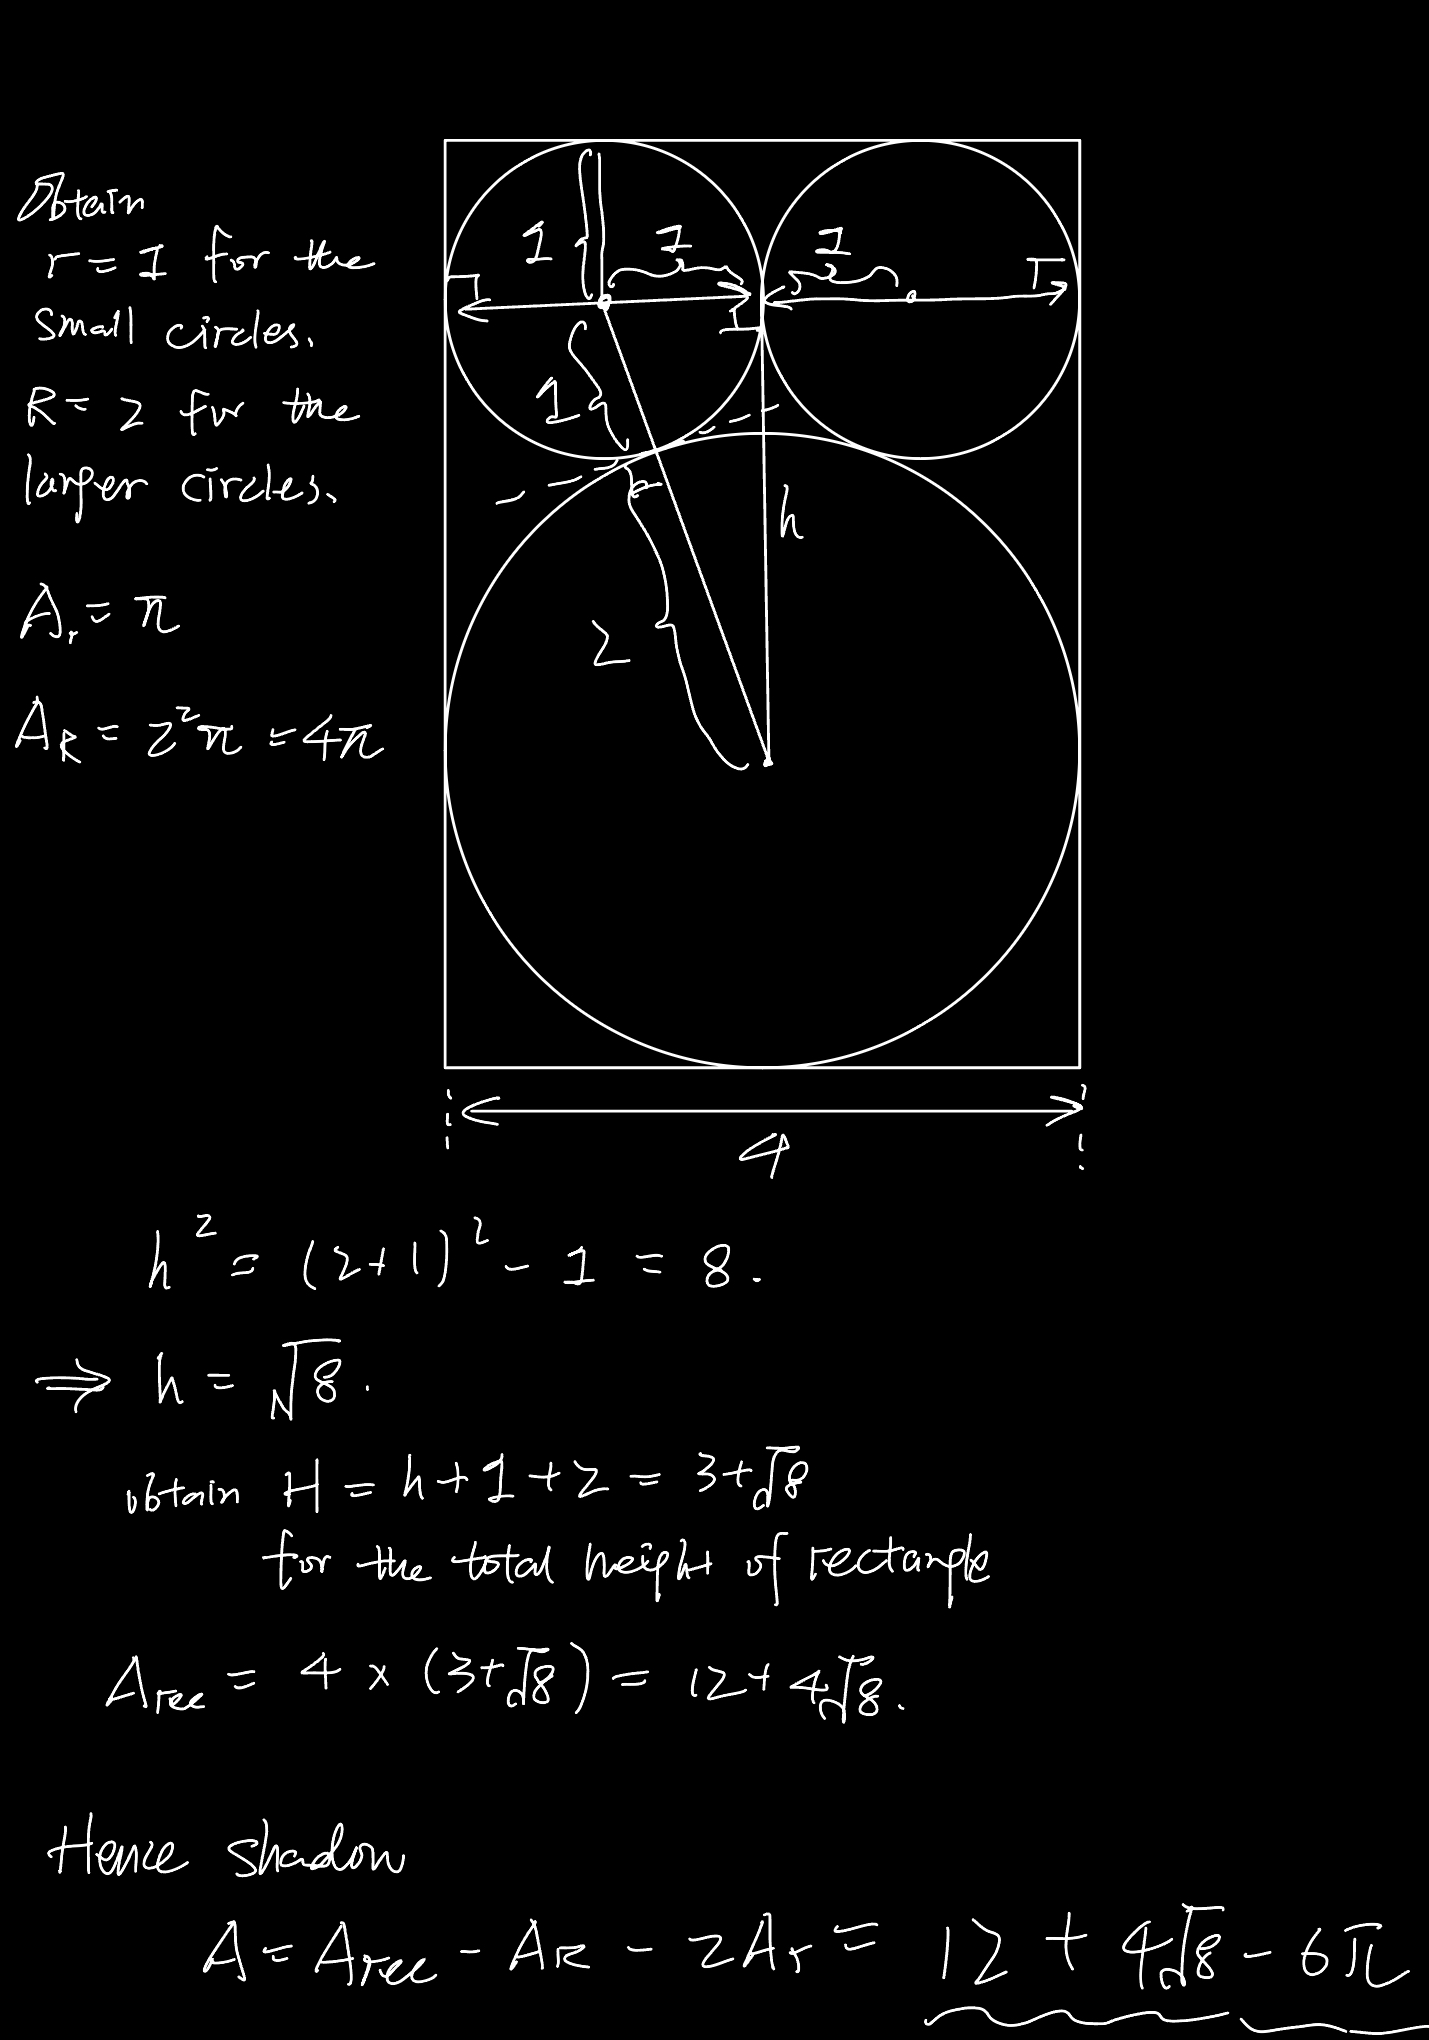 Obtain
r = 1 for the
small circles.
R = 2 for the
larger circles.
A_r = π
A_R = 2²π = 4π
1
1
1
1
2
h
4
h² = (2+1)² - 1 = 8.
⇒ h = √8.
obtain H = h+1+2 = 3+√8
for the total height of rectangle
A_rec = 4 × (3+√8) = 12+4√8.
Hence shadow
A = A_rec - A_R - 2A_r = 12 + 4√8 - 6π